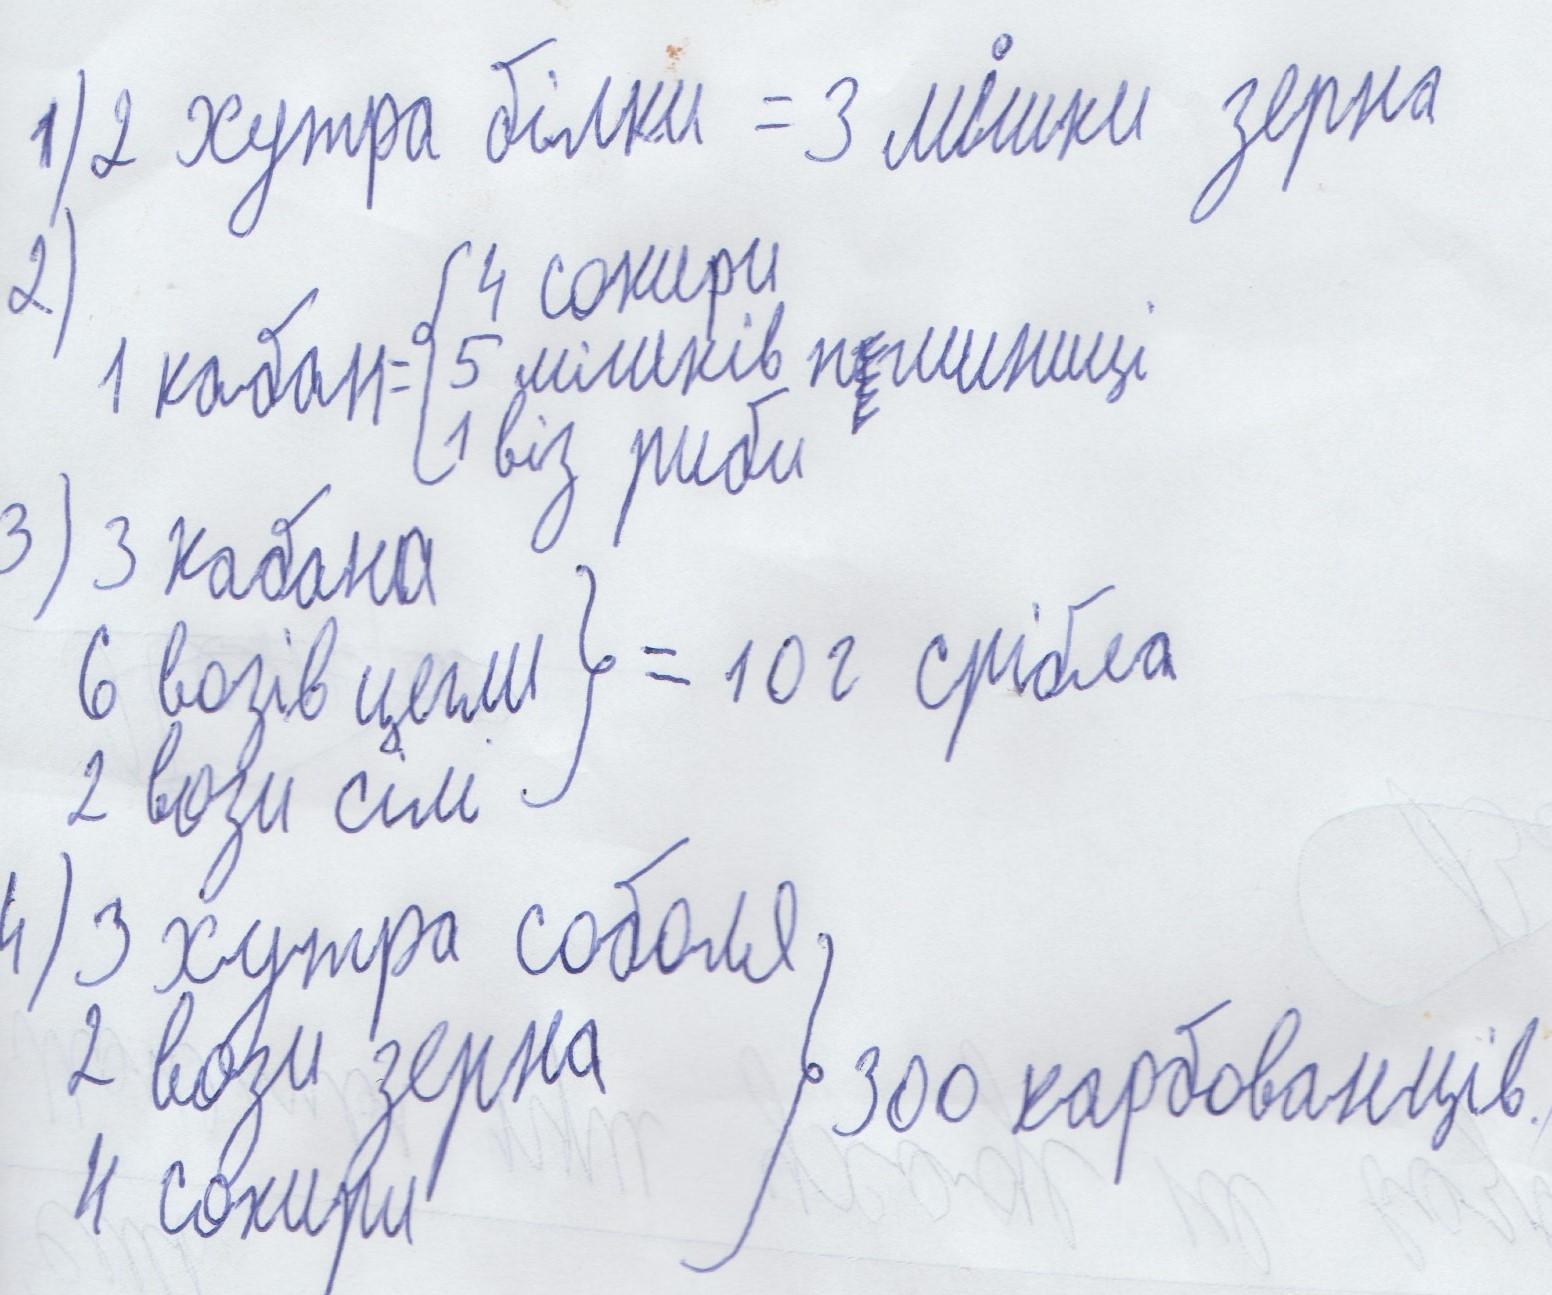 1) 2 хутра білки = 3 мішки зерна
2)
4 сокири
1 кабан = 5 мішків пшиниці
1 віз риби
3) 3 кабана
6 возів цегли = 10 г срібла
2 вози сілі
4) 3 хутра соболя
2 вози зерна
300 карбованців.
4 сокири